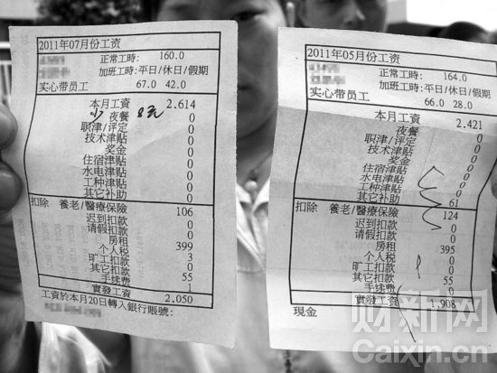 2011年07月份工资
正常工時: 160.0
加班工時: 平日/休日/假期
实心带员工 67.0 42.0
本月工资 2.614
少 夜餐 0
职津/评定 0
技术津贴 0
奖金 0
住宿津贴 0
水电津贴 0
工种津贴 0
其它补助 0
扣除 養老/醫療保險 106
迟到扣款 0
请假扣款 0
房租 399
个人税 3
旷工扣款 0
其它扣款 55
手续费 1
實發工資 2.050
工資於本月20日轉入銀行賬號:
2011年05月份工资
正常工時: 164.0
加班工時: 平日/休日/假期
实心带员工 66.0 28.0
本月工资 2.421
夜餐 0
职津/评定 0
技术津贴 0
奖金 0
住宿津贴 0
水电津贴 0
工种津贴 0
其它补助 61
扣除 養老/醫療保險 124
迟到扣款 0
请假扣款 0
房租 395
个人税 0
旷工扣款 0
其它扣款 55
手续费 0
實發工資 1.908
現金
财新网
Caixin.cn